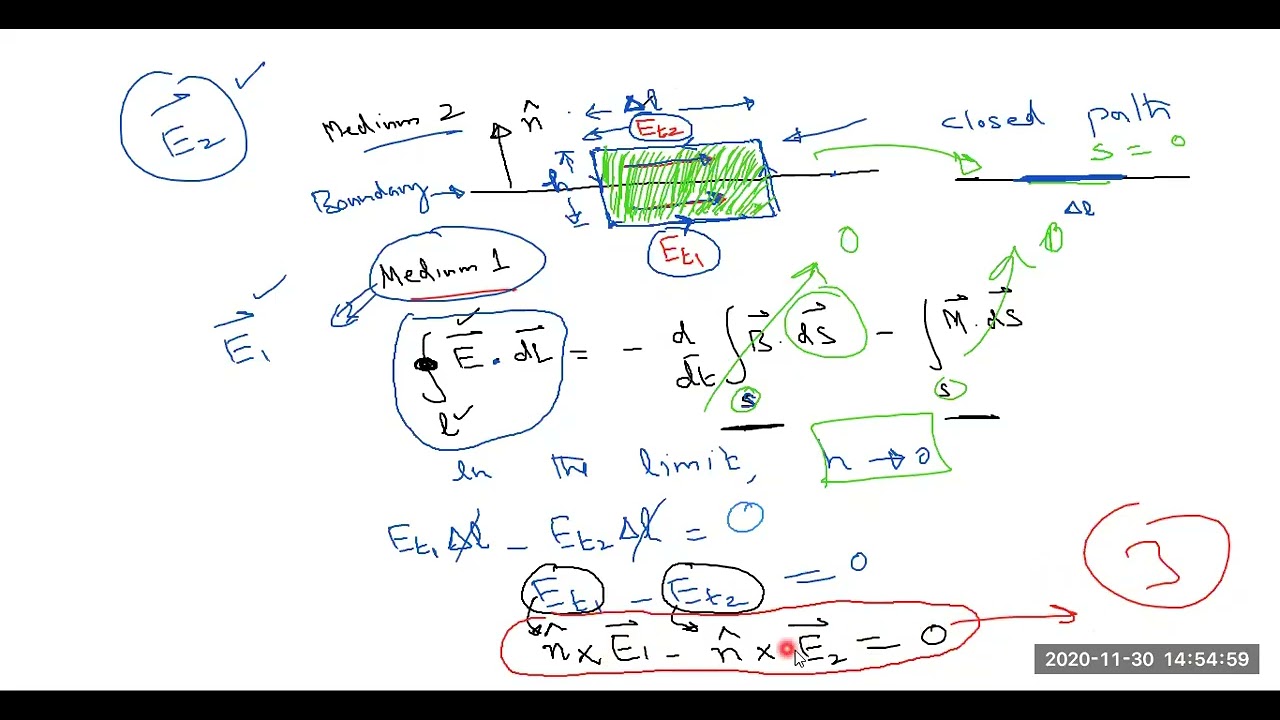 E₂
Medium 2
n̂
Δl
Et2
closed path
s = 0
Boundary
h
Δl
Et1
0
0
Medium 1
E⃗₁
∮ E⃗ · dL⃗ = - d/dt ∫ B⃗ · dS⃗ - ∫ M⃗ · dS⃗
l
s
s
In the limit, h → 0
Et1 Δl - Et2 Δl = 0
Et1 - Et2 = 0
n̂ × E⃗1 - n̂ × E⃗2 = 0
3
2020-11-30 14:54:59